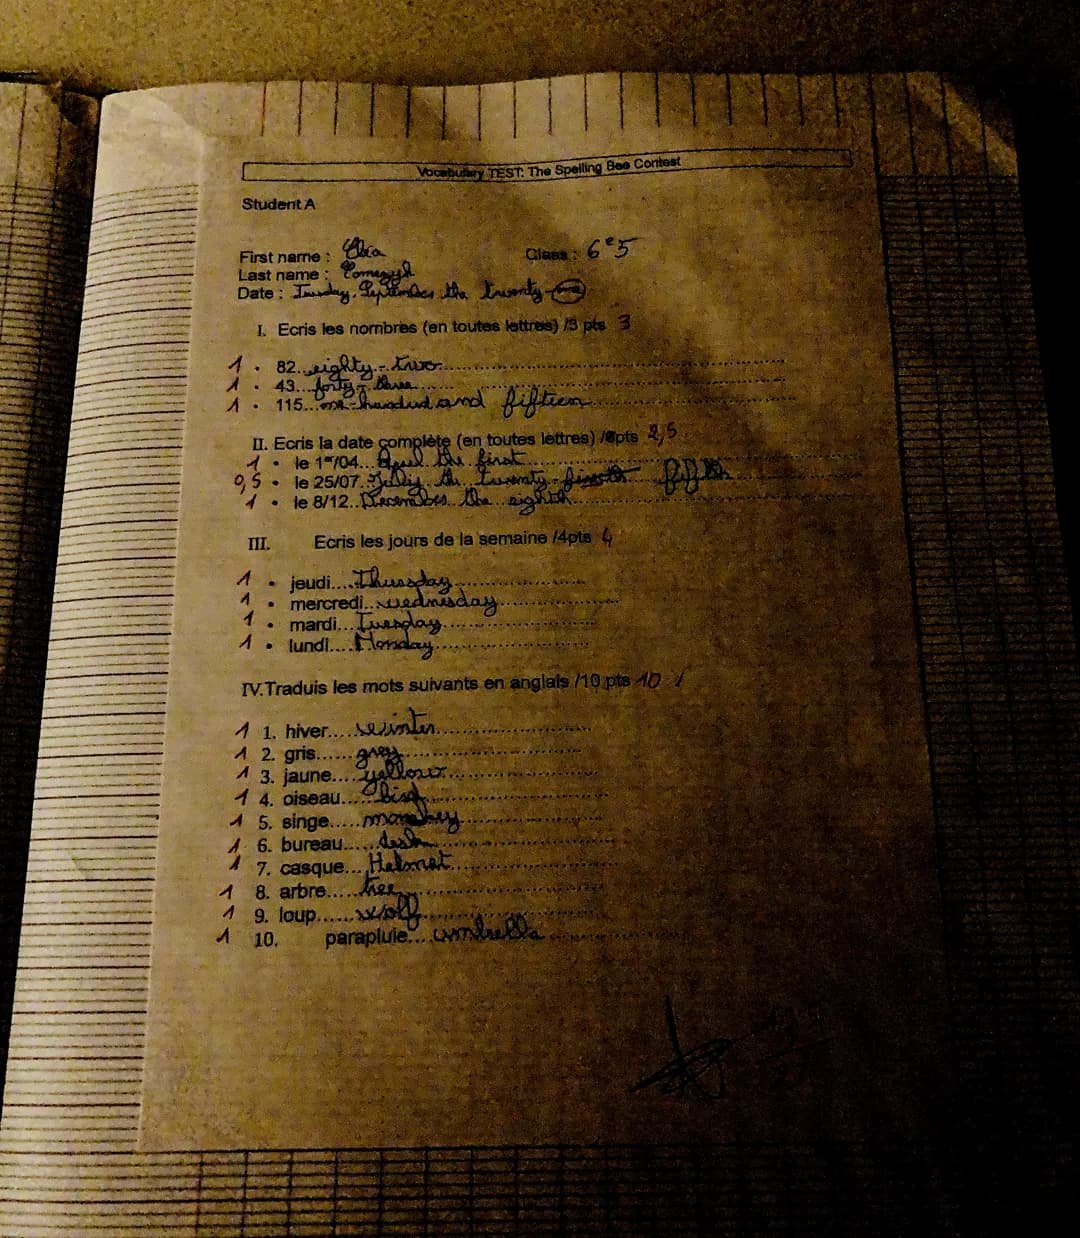 Vocabulary TEST: The Spelling Bee Contest
Student A
First name : Class : 6e5
Last name :
Date : Tuesday, September the twenty-
I. Ecris les nombres (en toutes lettres) /3 pts 3
1 • 82...eighty-two
1 • 43...forty-three
1 • 115...one hundred and fifteen
II. Ecris la date complète (en toutes lettres) /3pts 2,5
1 • le 1er/04...April the first
0,5 • le 25/07...July the twenty- fifth
1 • le 8/12...December the eighth
III. Ecris les jours de la semaine /4pts 4
1 • jeudi....Thursday
1 • mercredi...wednesday
1 • mardi...Tuesday
1 • lundi....Monday
IV.Traduis les mots suivants en anglais /10 pts 10
1 1. hiver....winter
1 2. gris......grey
1 3. jaune....yellow
1 4. oiseau.....bird
1 5. singe.....monkey
1 6. bureau.....desk
1 7. casque...Helmet
1 8. arbre.....tree
1 9. loup......wolf
1 10. parapluie....umbrella